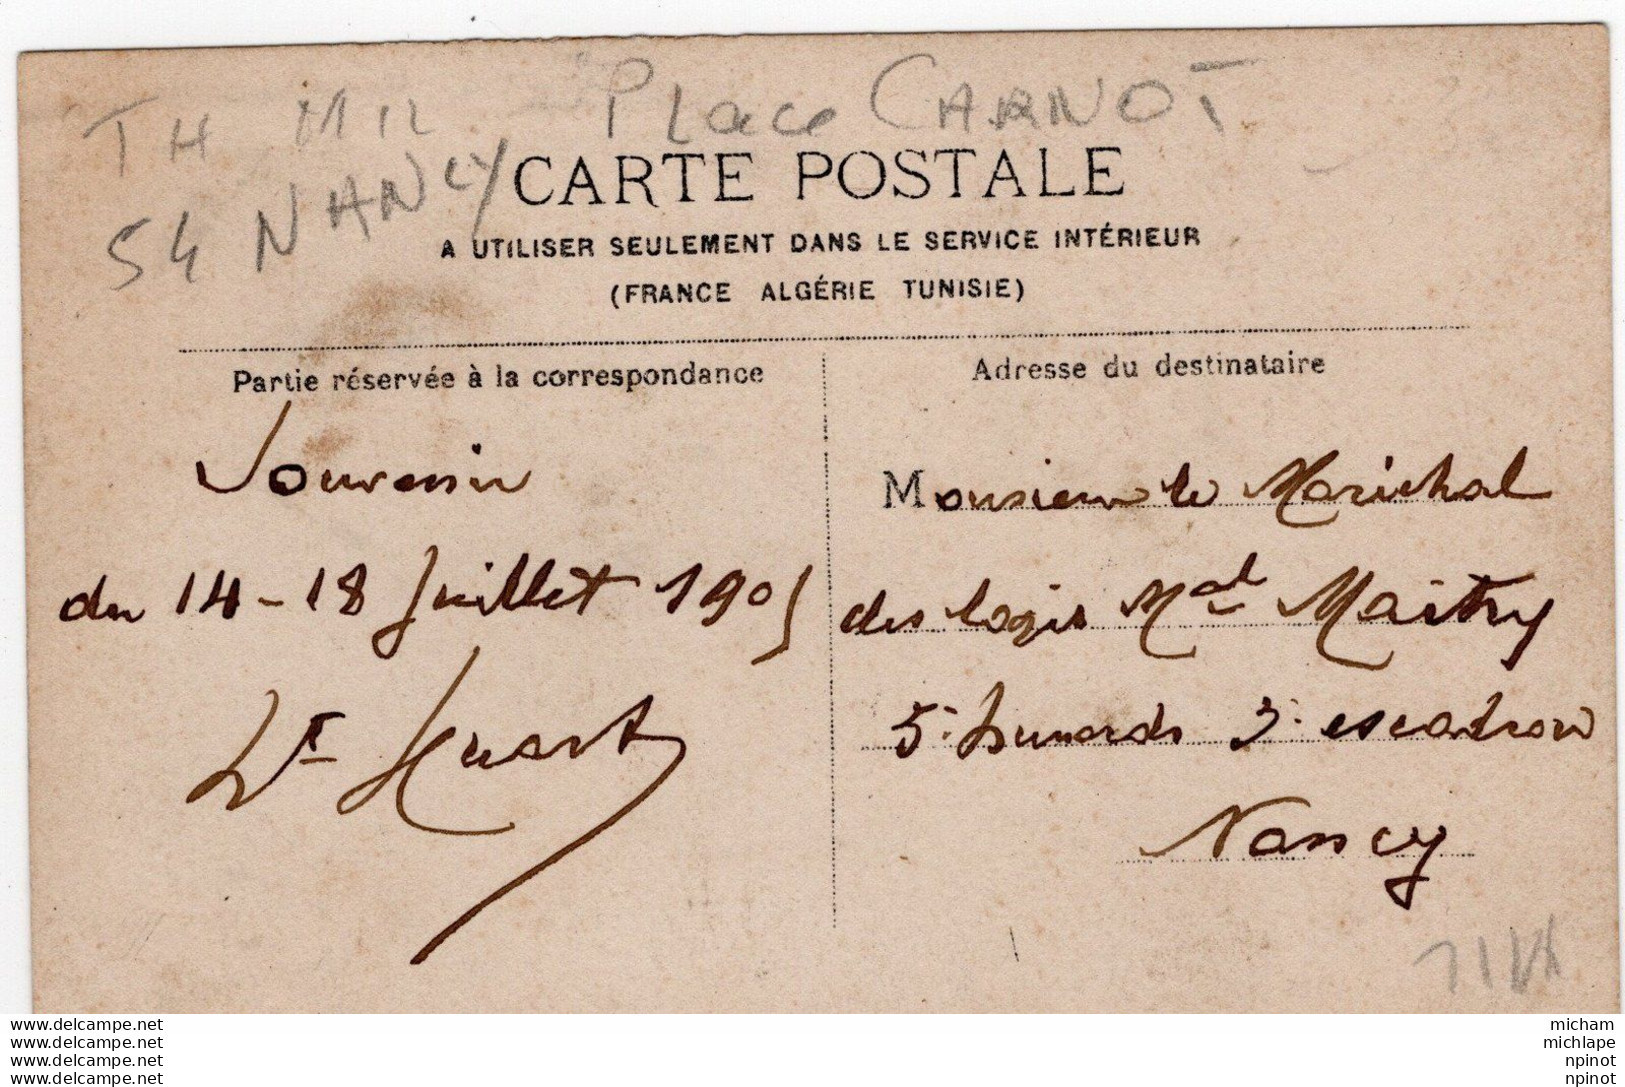 TH MIL Place CARNOT
54 NANCY
CARTE POSTALE
A UTILISER SEULEMENT DANS LE SERVICE INTÉRIEUR
(FRANCE ALGÉRIE TUNISIE)
Partie réservée à la correspondance
Souvenir
du 14-18 Juillet 1905
Huart
Adresse du destinataire
Monsieur le Maréchal
des logis Mal Maitry
5e hussards 3e escadron
Nancy
www.delcampe.net
www.delcampe.net
www.delcampe.net
www.delcampe.net
micham
michlape
npinot
npinot